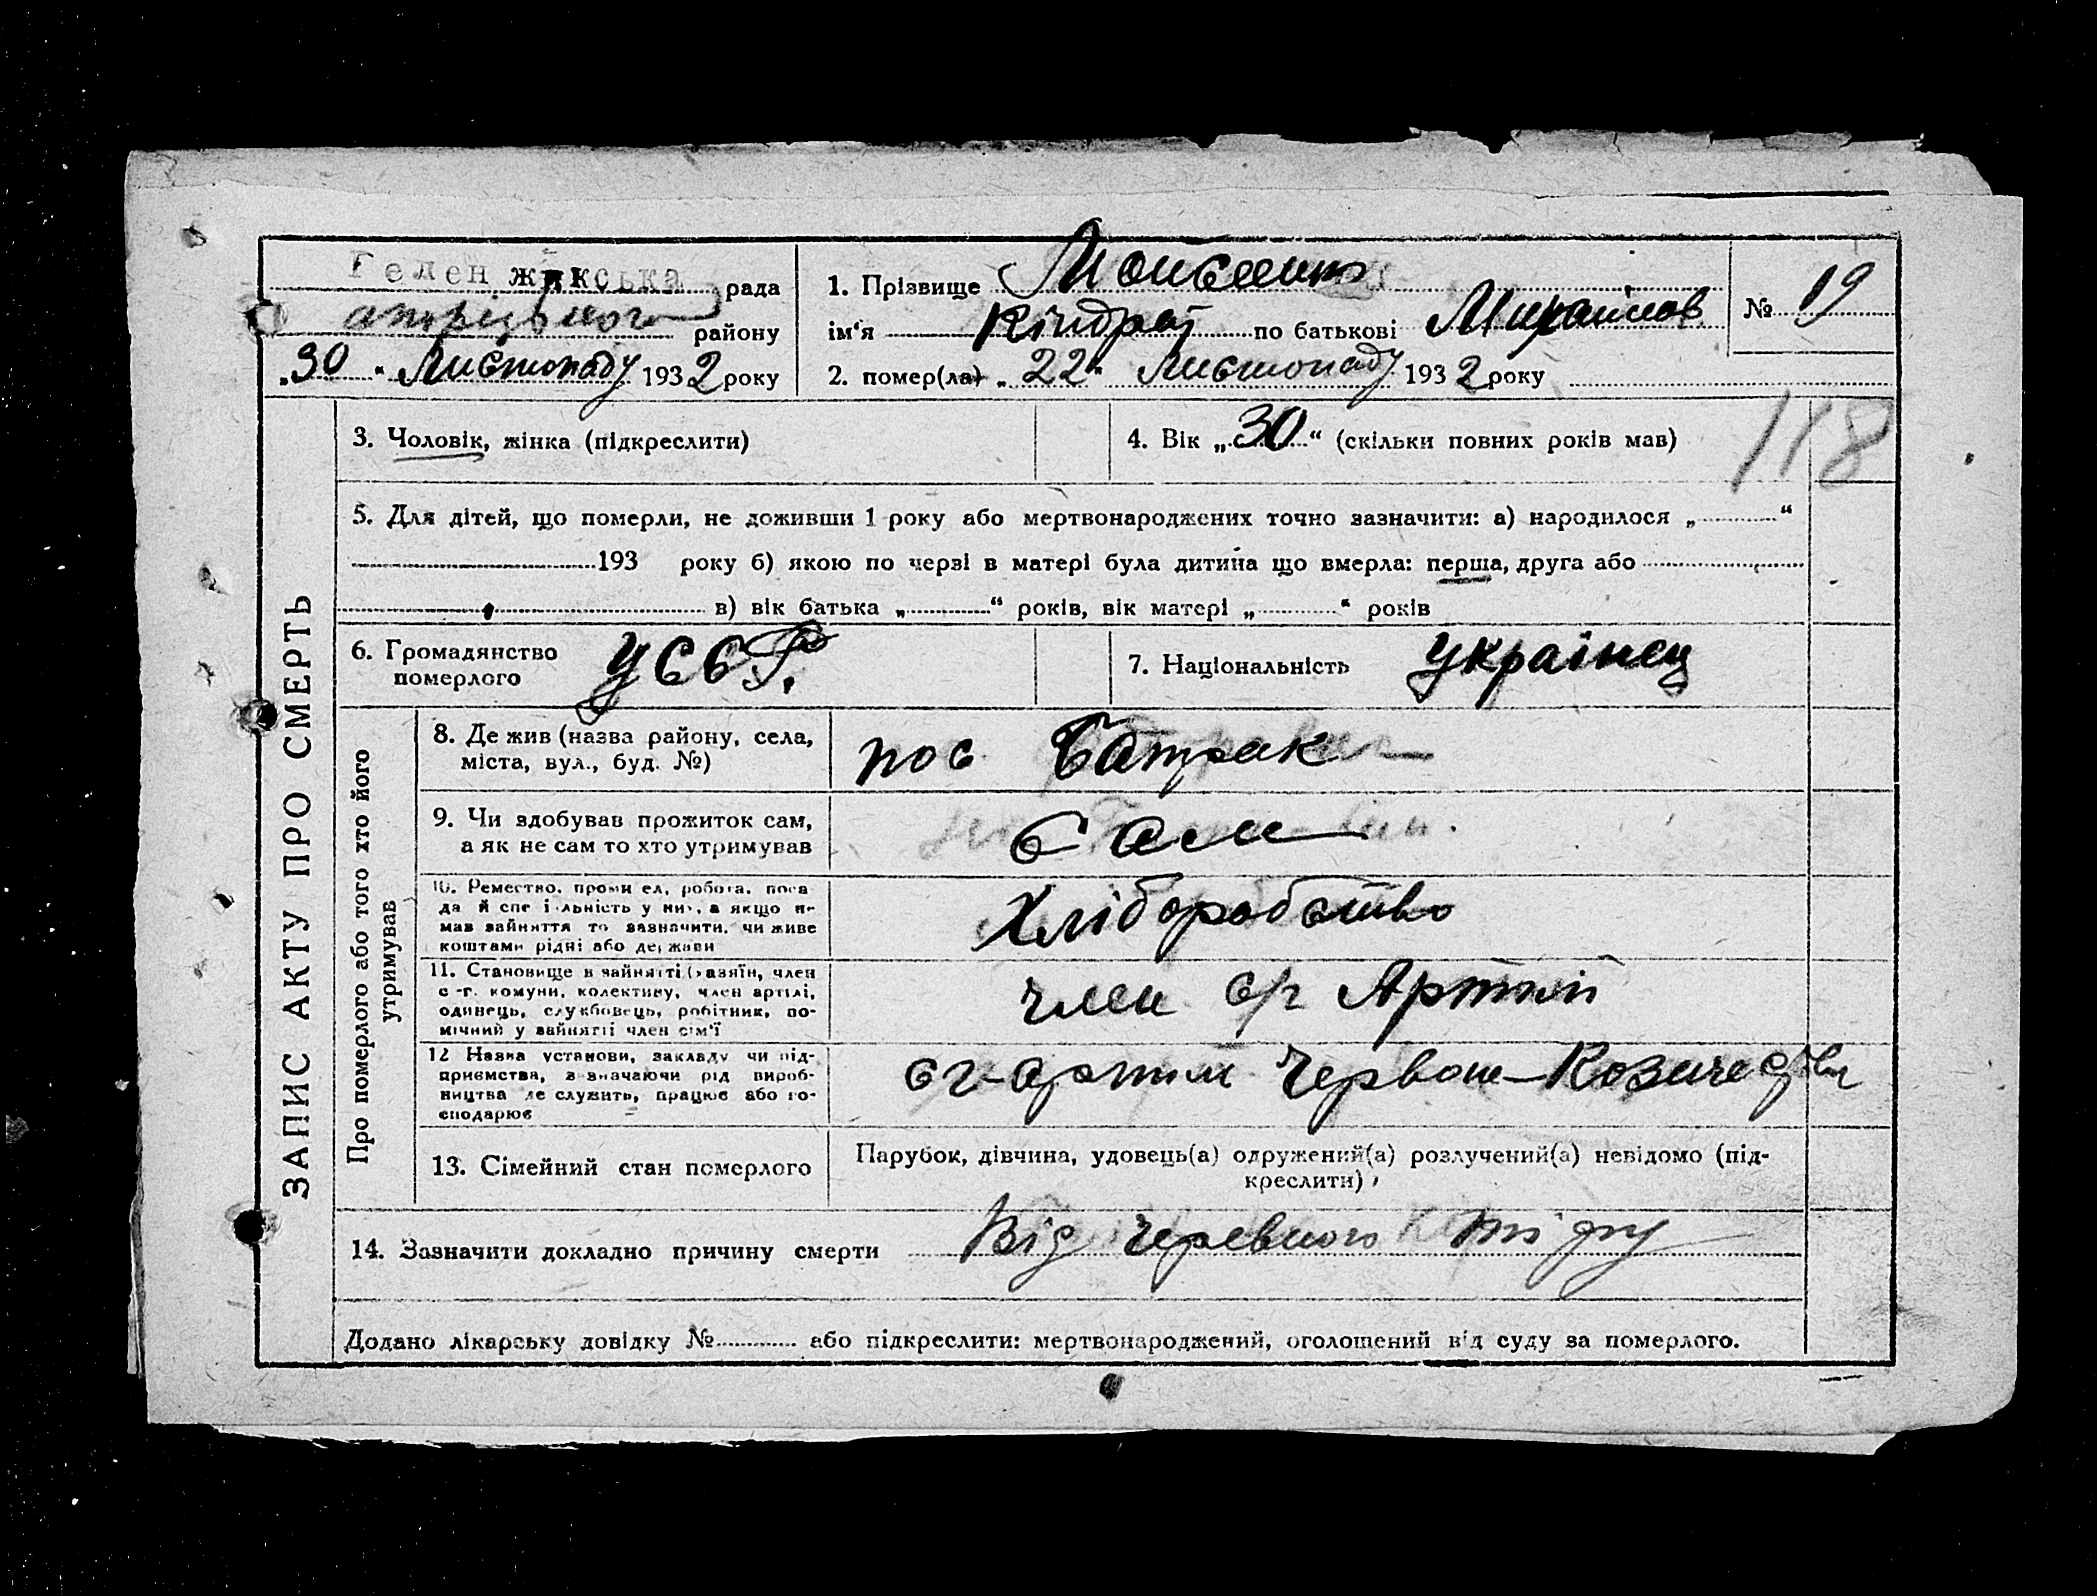 Геленжикська рада
району
„30“ Листопаду 1932 року
1. Прізвище
ім'я Кіндрат по батькові Михайлов
2. помер(ла) „22“ Листопаду 1932 року
№ 19
118
ЗАПИС АКТУ ПРО СМЕРТЬ
3. Чоловік, жінка (підкреслити)
4. Вік „30“ (скільки повних років мав)
5. Для дітей, що померли, не доживши 1 року або мертвонароджених точно зазначити: а) народилося „ “
193 року б) якою по черзі в матері була дитина що вмерла: перша, друга або
в) вік батька „ “ років, вік матері „ “ років
6. Громадянство
померлого
УССР.
7. Національність Українец
Про померлого або того хто його
утримував
8. Де жив (назва району, села,
міста, вул., буд. №)
пос Батрак
9. Чи здобував прожиток сам,
а як не сам то хто утримував
Сам
10. Ремество, промисел, робота, поса-
да й спеціяльність у них, а якщо не
мав зайняття то зазначити, чи живе
коштами рідні або держави
Хліборобство
11. Становище в зайнятті (хазяїн, член
с.-г. комуни, колективу, член артілі,
одинець, службовець, робітник, по-
мічний у зайнятті член сім'ї
член с/г Артілі
12 Назва установи, закладу чи під-
приємства, зазначаючи рід вироб-
ництва де служить, працює або го-
сподарює
сг-артіл Червоне
13. Сімейний стан померлого
Парубок, дівчина, удовець(а) одружений(а) розлучений(а) невідомо (під-
креслити)
14. Зазначити докладно причину смерти Від черевного тіфу
Додано лікарську довідку № або підкреслити: мертвонароджений, оголошений від суду за померлого.